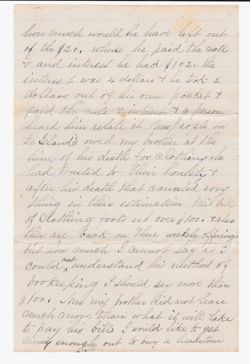 how much would he have left out
of the $20. when he paid the note
& and interest he had $102. the
interest was 4 dollars & he took 2
dollars out of his own pocket &
paid the note & interest & a person
heard him relate it. Those people on
the Island owed my brother at the
time of his death for clothing he
had trusted to their honesty &
after his death that canceled every
thing in their estimation this bill
of clothing foots up over $100. & also
they are back on there weekly
but how much I cannot say as I
could not understand his method of
bookeeping I should say more than
$100. Now my brother did not leave
much more than what it will take
to pay his bills I would like to get
enough out to buy a headstone